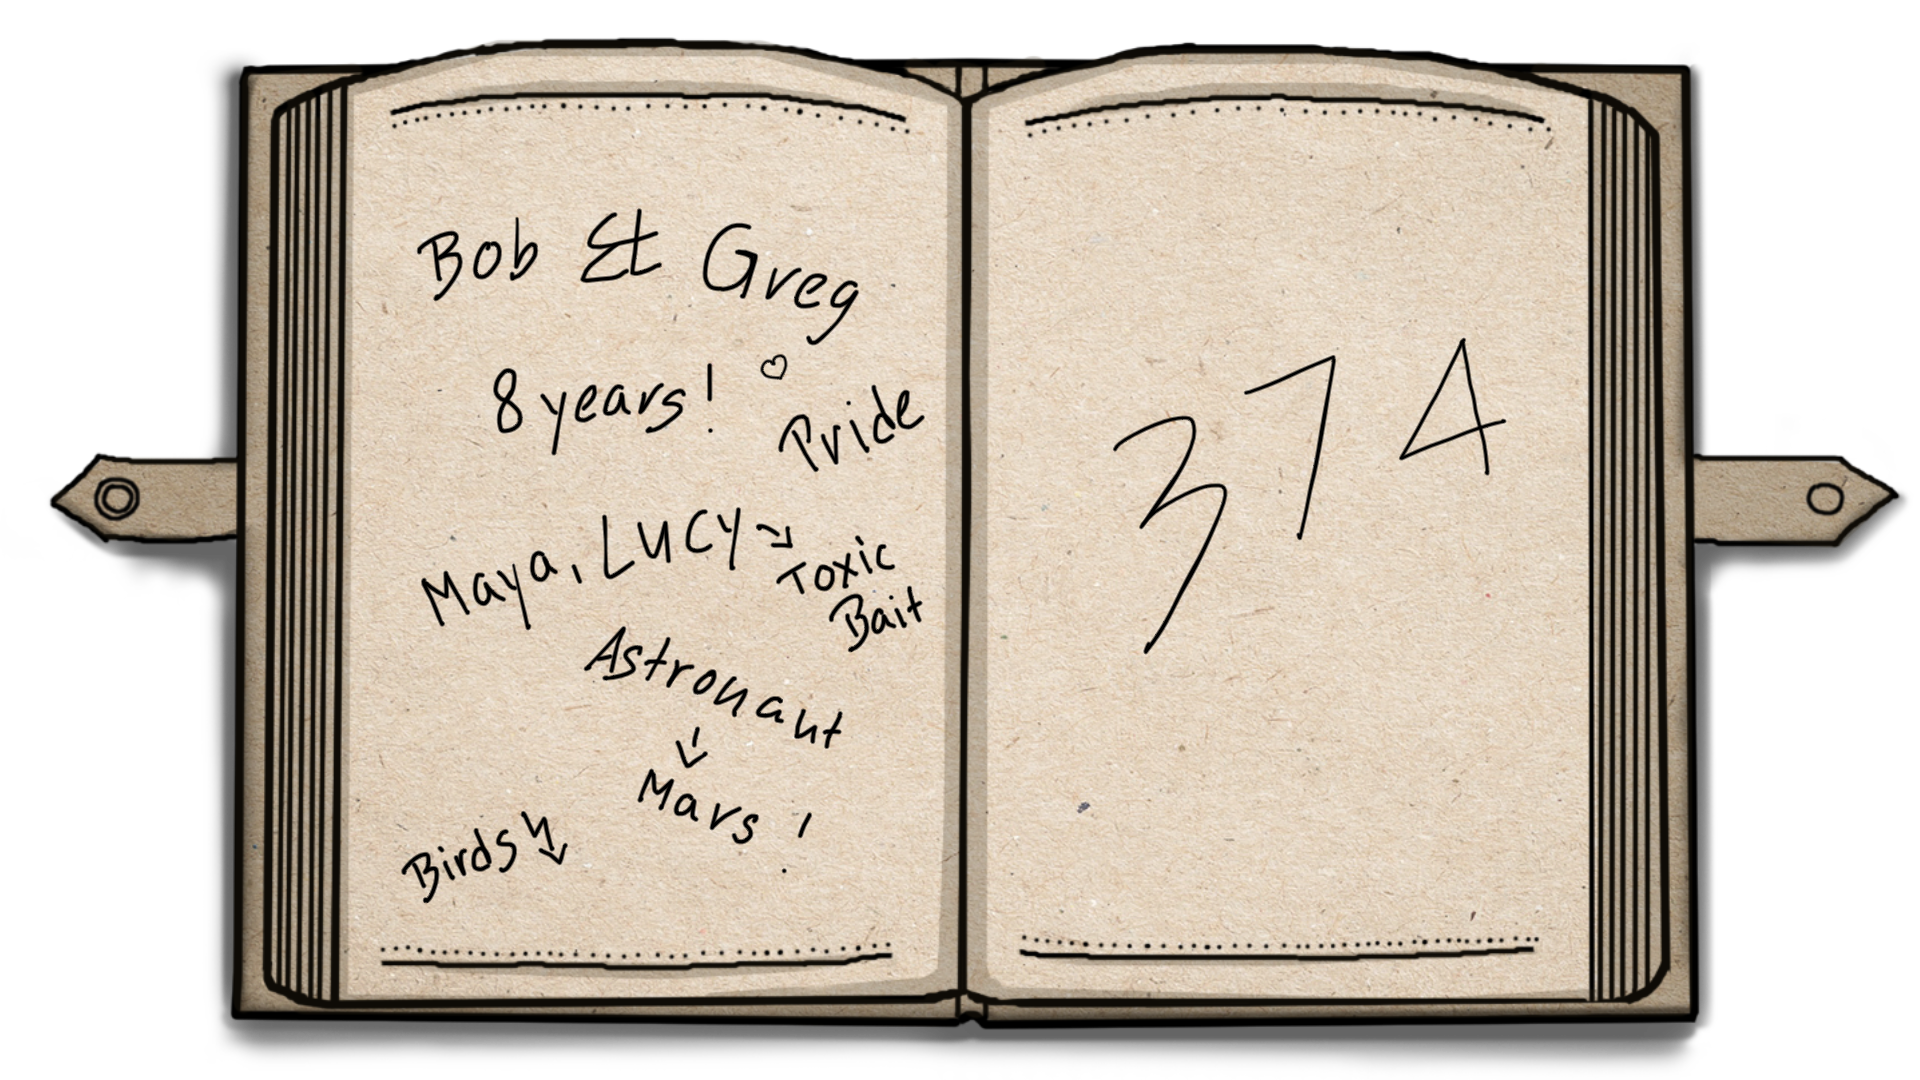 Bob & Greg
8 years! ♡
Pride
Maya, LUCY ↘
Toxic
Bait
Astronaut
↓
Mars!
Birds ↯
374